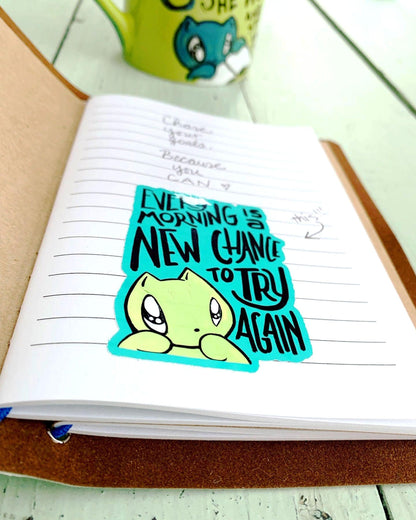 SHE
Chase
your
goals.
Because
you
CAN ♡
this!!!
EVERY
MORNING IS
A
NEW CHANCE
TO TRY
AGAIN